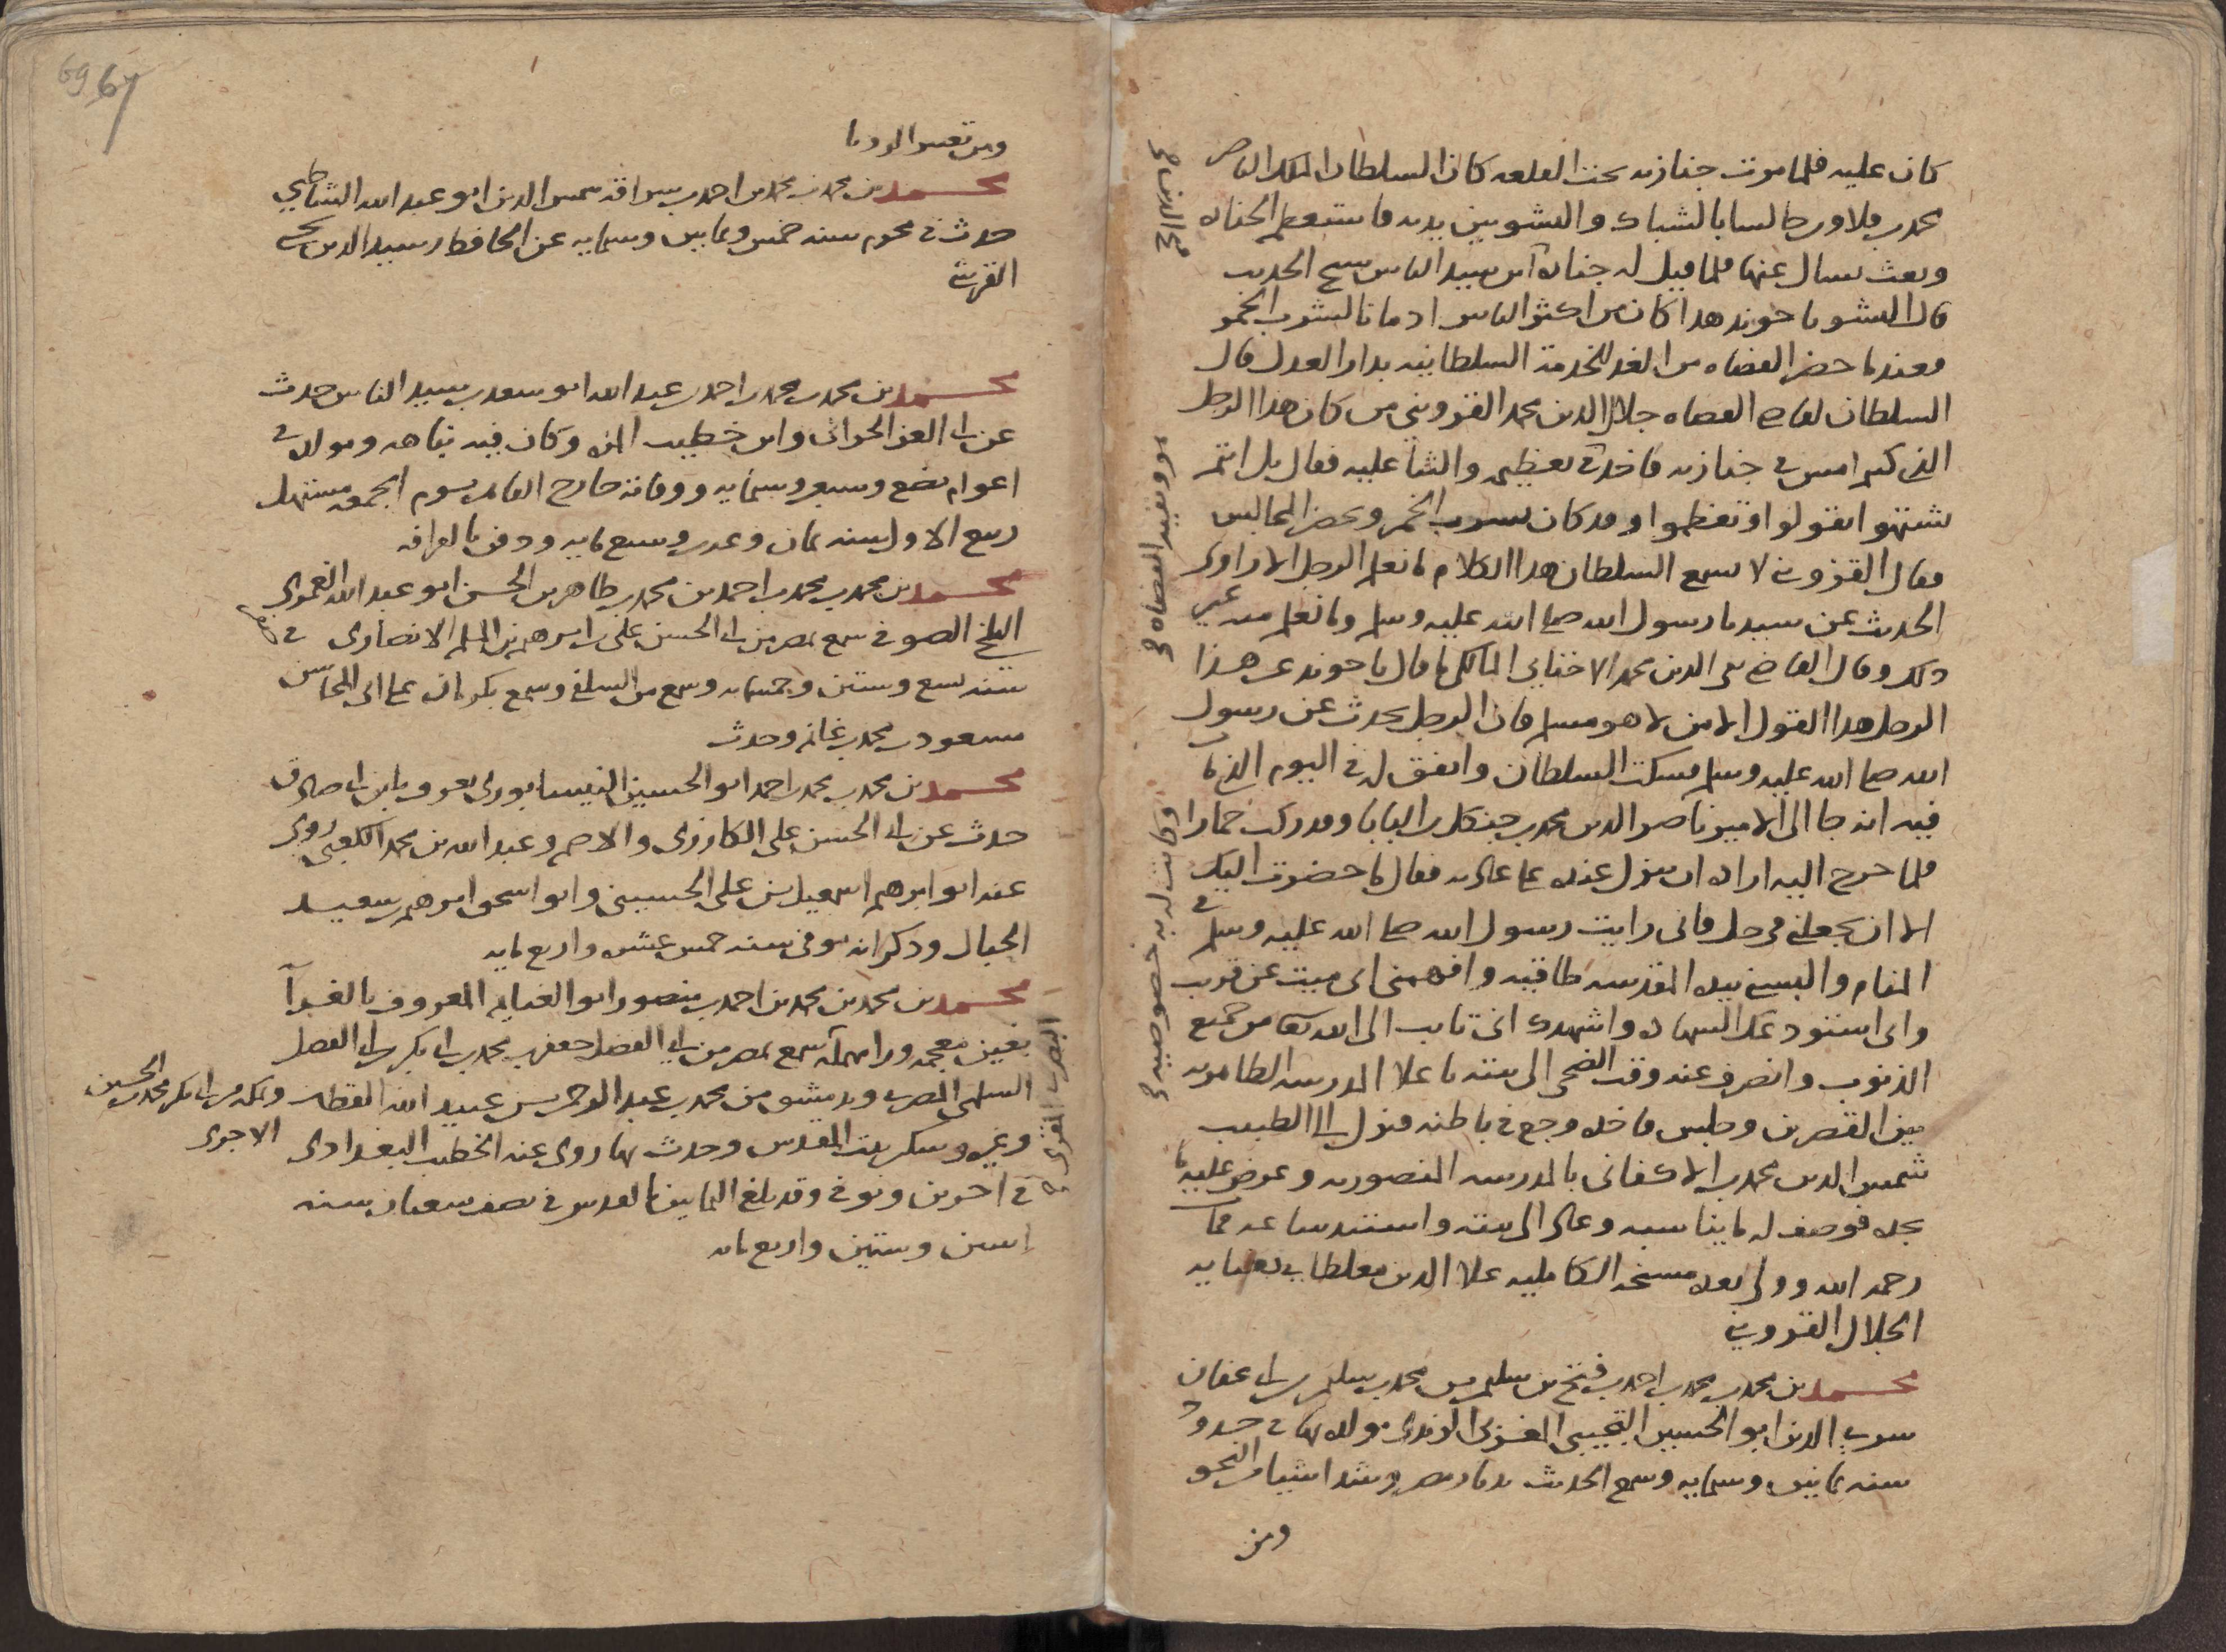 كان عليه فلما مرت جنازته تحت القلعه كان السلطان الملك الناصر
محمد بن قلاون جالسا بالشباك والنشو بين يديه فاستعظم الجنازه
وبعث يسال عنها فلما قيل له جنازة ابن سيد الناس شيخ الحديث
قال النشو يا خوند هدا كان من اكثر الناس ادمانا لشرب الخمر
فعندما حضر القضاه من الغد للخدمة السلطانيه بدار العدل قال
السلطان لقاضي القضاه جلال الدين محمد القزويني من كان هدا الرجل
الذي كنتم امس في جنازته فاخد في تعظيمه والثنا عليه فقال بل انتم
تشتهوا تقولوا وتعظموا وقد كان يشرب الخمر ويحضر المجالس
فقال القزويني لا يسمع السلطان هدا الكلام ما نعلم الرجل الا راوى
الحديث عن سيدنا رسول الله صلى الله عليه وسلم وما نعلم منه غير
دلك وقال القاضي تقي الدين محمد الاخناي المالكي ما قال يا خوند عن هذا
الرجل هدا القول الا من لا هو مسلم فان الرجل يحدث عن رسول
الله صلى الله عليه وسلم فسكت السلطان واتفق له في اليوم الذي مات
فيه انه جا الى الامير ناصر الدين محمد بن جنكلي بن البابا وقد ركب حمارا
فلما خرج اليه اراد ان ينزل عنده على عادته فقال ما حضرت اليك
الا ان تجعلني في حل فاني رايت رسول الله صلى الله عليه وسلم في
المنام والبسني بيده المقدسه طاقيه وافهمني اني ميت عن قريب
واني استودعك الشهاده واشهدك اني تايب الى الله تعالى من جميع
الذنوب وانصرف عنه وقت الضحى الى بيته باعلا المدرسه الظاهريه
بين القصرين وجلس فاخده وجع في باطنه فنزل الى الطبيب
شمس الدين محمد بن الاكفاني بالمدرسه المنصوريه وعرض عليه ما
يجده فوصف له ما يناسبه وعاد الى بيته واستند ساعه فمات
رحمه الله وولي بعده مشيخة الكامليه علا الدين مغلطاي بعنايه
الجلال القزويني
محمد بن محمد بن محمد بن احمد بن فتح بن سليم بن محمد بن سليم بن ابي عفان
شرب الدين ابو الحسين التجيبي الغزي مولده بها في حدود
سنه ثمانين وستمايه وسمع الحديث بديار مصر وشدا شيا من النحو
ومن
ومن تعبير الرويا
محمد بن محمد بن محمد بن احمد بن سراقه شمس الدين ابو عبد الله الشاطبي
حدث في محرم سنه خمس وثمانين وستمايه عن الحافظ رشيد الدين يحيى
القرشي
محمد بن محمد بن محمد بن احمد بن عبد الله ابو سعد بن سيد الناس حدث
عن ابي العز الحراني وابن خطيب المزه وكان فيه نباهه ومولده في
اعوام بضع وسبعين وستمايه ووفاته خارج القاهره يوم الجمعه مستهل
ربيع الاول سنه ثمان وعشرين وسبع مايه ودفن بالقرافه
محمد بن محمد بن محمد بن احمد بن محمد بن طاهر بن الحسن ابو عبد الله العمرى
البلخي الصوفي سمع بمصر من ابي الحسن علي بن ابرهيم بن المسلم الانصارى في
سنه تسع وستين وخمسمايه وسمع من السلفي وسمع بكرمان على ابي المحاسن
مسعود بن محمد بن غانم وحدث
محمد بن محمد بن محمد بن احمد ابو الحسين النيسابورى يعرف بابن ابي صادق
حدث عن ابي الحسن علي الكارزى والاصم وعبد الله بن محمد الكعبي روى
عنه ابو ابرهيم اسمعيل بن علي الحسيني وابو اسحق ابرهيم بن سعيد
الحبال ودكر انه توفي سنه خمس عشره واربع مايه
محمد بن محمد بن محمد بن احمد بن منصور ابو الغنايم المعروف بالغرا
بغين معجمه ورا مهمله سمع بمصر من ابي الفضل جعفر بن محمد بن ابي بكر بن ابي الفضل
السلمي المصرى وبدمشق من محمد بن عبد الرحمن بن عبيد الله القطان وبمكه من ابي بكر محمد بن الحسين
الاجرى
وغيره وسكن بيت المقدس وحدث بها روى عنه الخطيب البغدادى
في اخرين وتوفي وقد بلغ الثمانين بالقدس في نصف شعبان سنه
اثنين وستين واربع مايه
البصرى المقرى صح